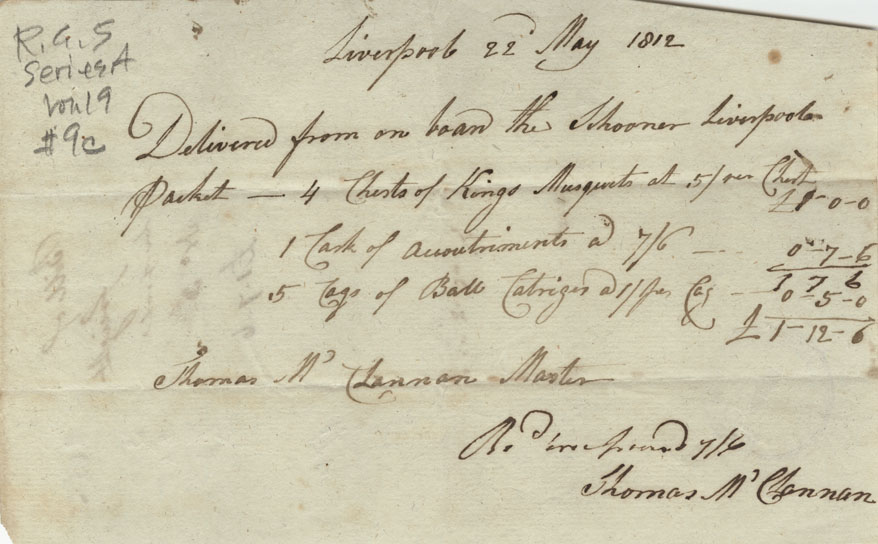 R.G.5
Series A
Vol 19
#9c
Liverpool 22d May 1812
Delivered from on board the Schooner Liverpool
Packet — 4 Chests of Kings Musquets at 5/ per Chest £1-0-0
1 Cask of accoutriments a 7/6 — 0-7-6
1 7 6
5 Cags of Ball Catriges a 1/ per Cag — 0-5-0
£1-12-6
Thomas Mc Clannan Master
Recd 7/6
Thomas Mc Clennan